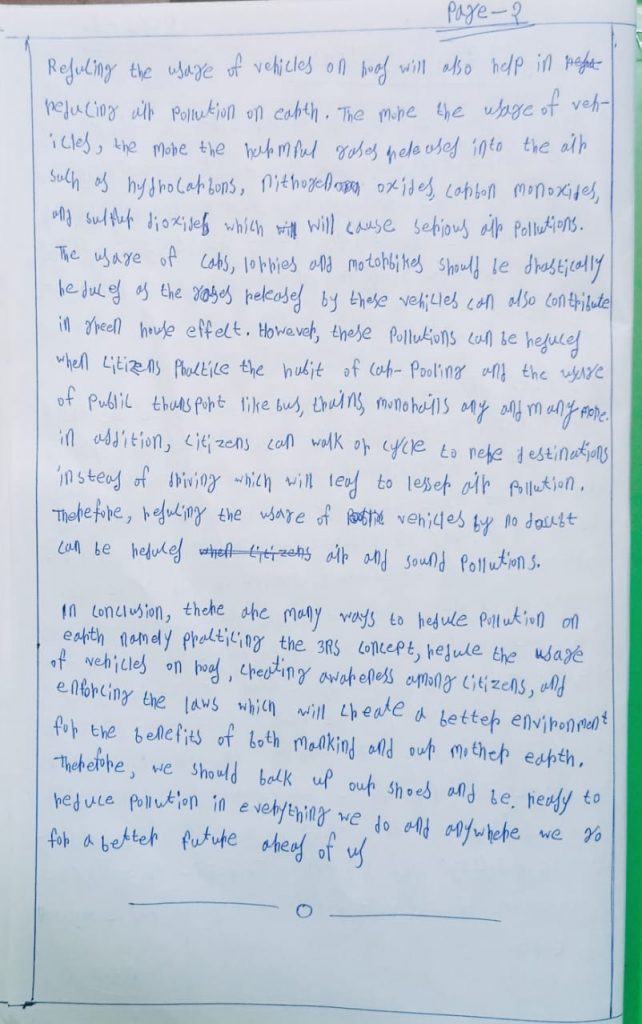 Page-2
Reducing the usage of vehicles on road will also help in
reducing air pollution on earth. The more the usage of veh-
icles, the more the harmful gases released into the air
such as hydrocarbons, nithogen oxides, carbon monoxides,
and sulfur dioxides which will will cause serious air pollutions.
The usage of cars, lorries and motorbikes should be drastically
reduced as the gases released by these vehicles can also contribute
in green house effect. However, these pollutions can be reduced
when citizens practice the habit of car-pooling and the usage
of public transport like bus, trains, monorails any and many more.
in addition, citizens can walk or cycle to nere destinations
instead of driving which will lead to lesser air pollution.
Therefore, reducing the usage of vehicles by no doubt
can be reduced when citizens air and sound pollutions.
In conclusion, there are many ways to reduce pollution on
earth namely practicing the 3RS concept, reduce the usage
of vehicles on road, creating awareness among citizens, and
enforcing the laws which will create a better environment
for the benefits of both mankind and our mother earth.
Therefore, we should back up our shoes and be. ready to
reduce pollution in everything we do and anywhere we go
for a better future ahead of us